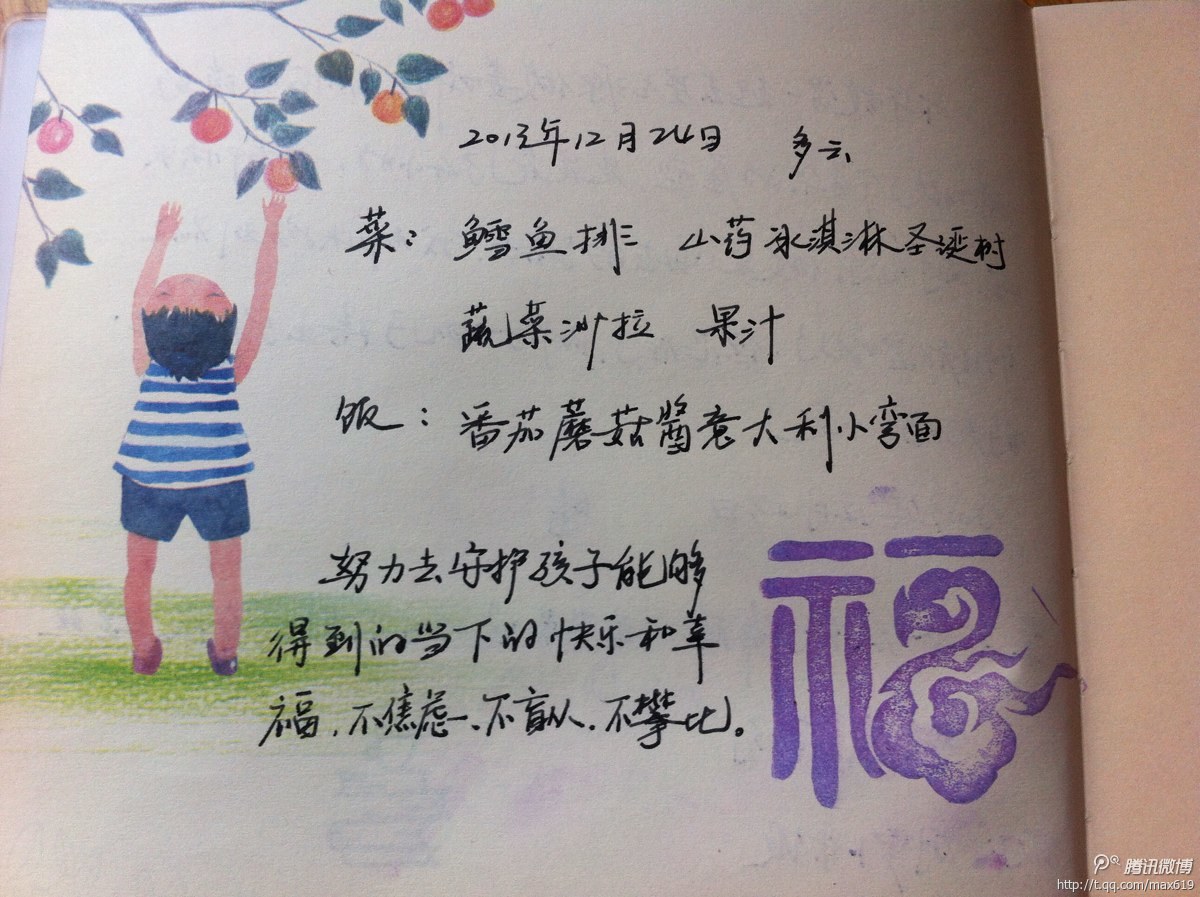 2013年12月24日 多云
菜：鳕鱼排 山药冰淇淋圣诞树
蔬菜沙拉 果汁
饭：番茄蘑菇醬意大利小弯面
努力去守护孩子能够
得到的当下的快乐和幸
福，不焦虑、不盲从、不攀比。
福
腾讯微博
http://t.qq.com/max619